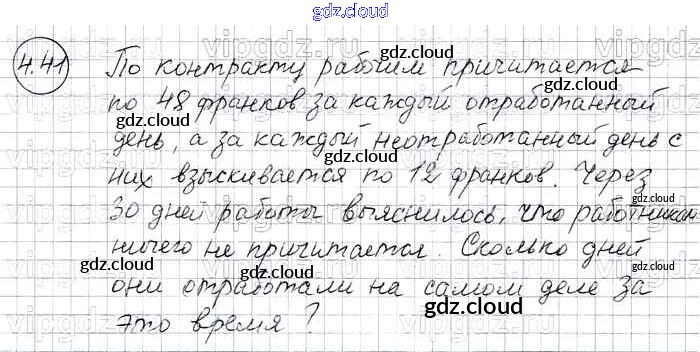 gdz.cloud
4.41 По контракту рабочим причитается
по 48 франков за каждый отработанный
день, а за каждый неотработанный день с
них взыскивается по 12 франков. Через
30 дней работы выяснилось, что работникам
ничего не причитается. Сколько дней
они отработали на самом деле за
это время?
gdz.cloud
gdz.cloud
gdz.cloud
gdz.cloud
gdz.cloud
gdz.cloud
gdz.cloud
gdz.cloud
gdz.cloud
gdz.cloud